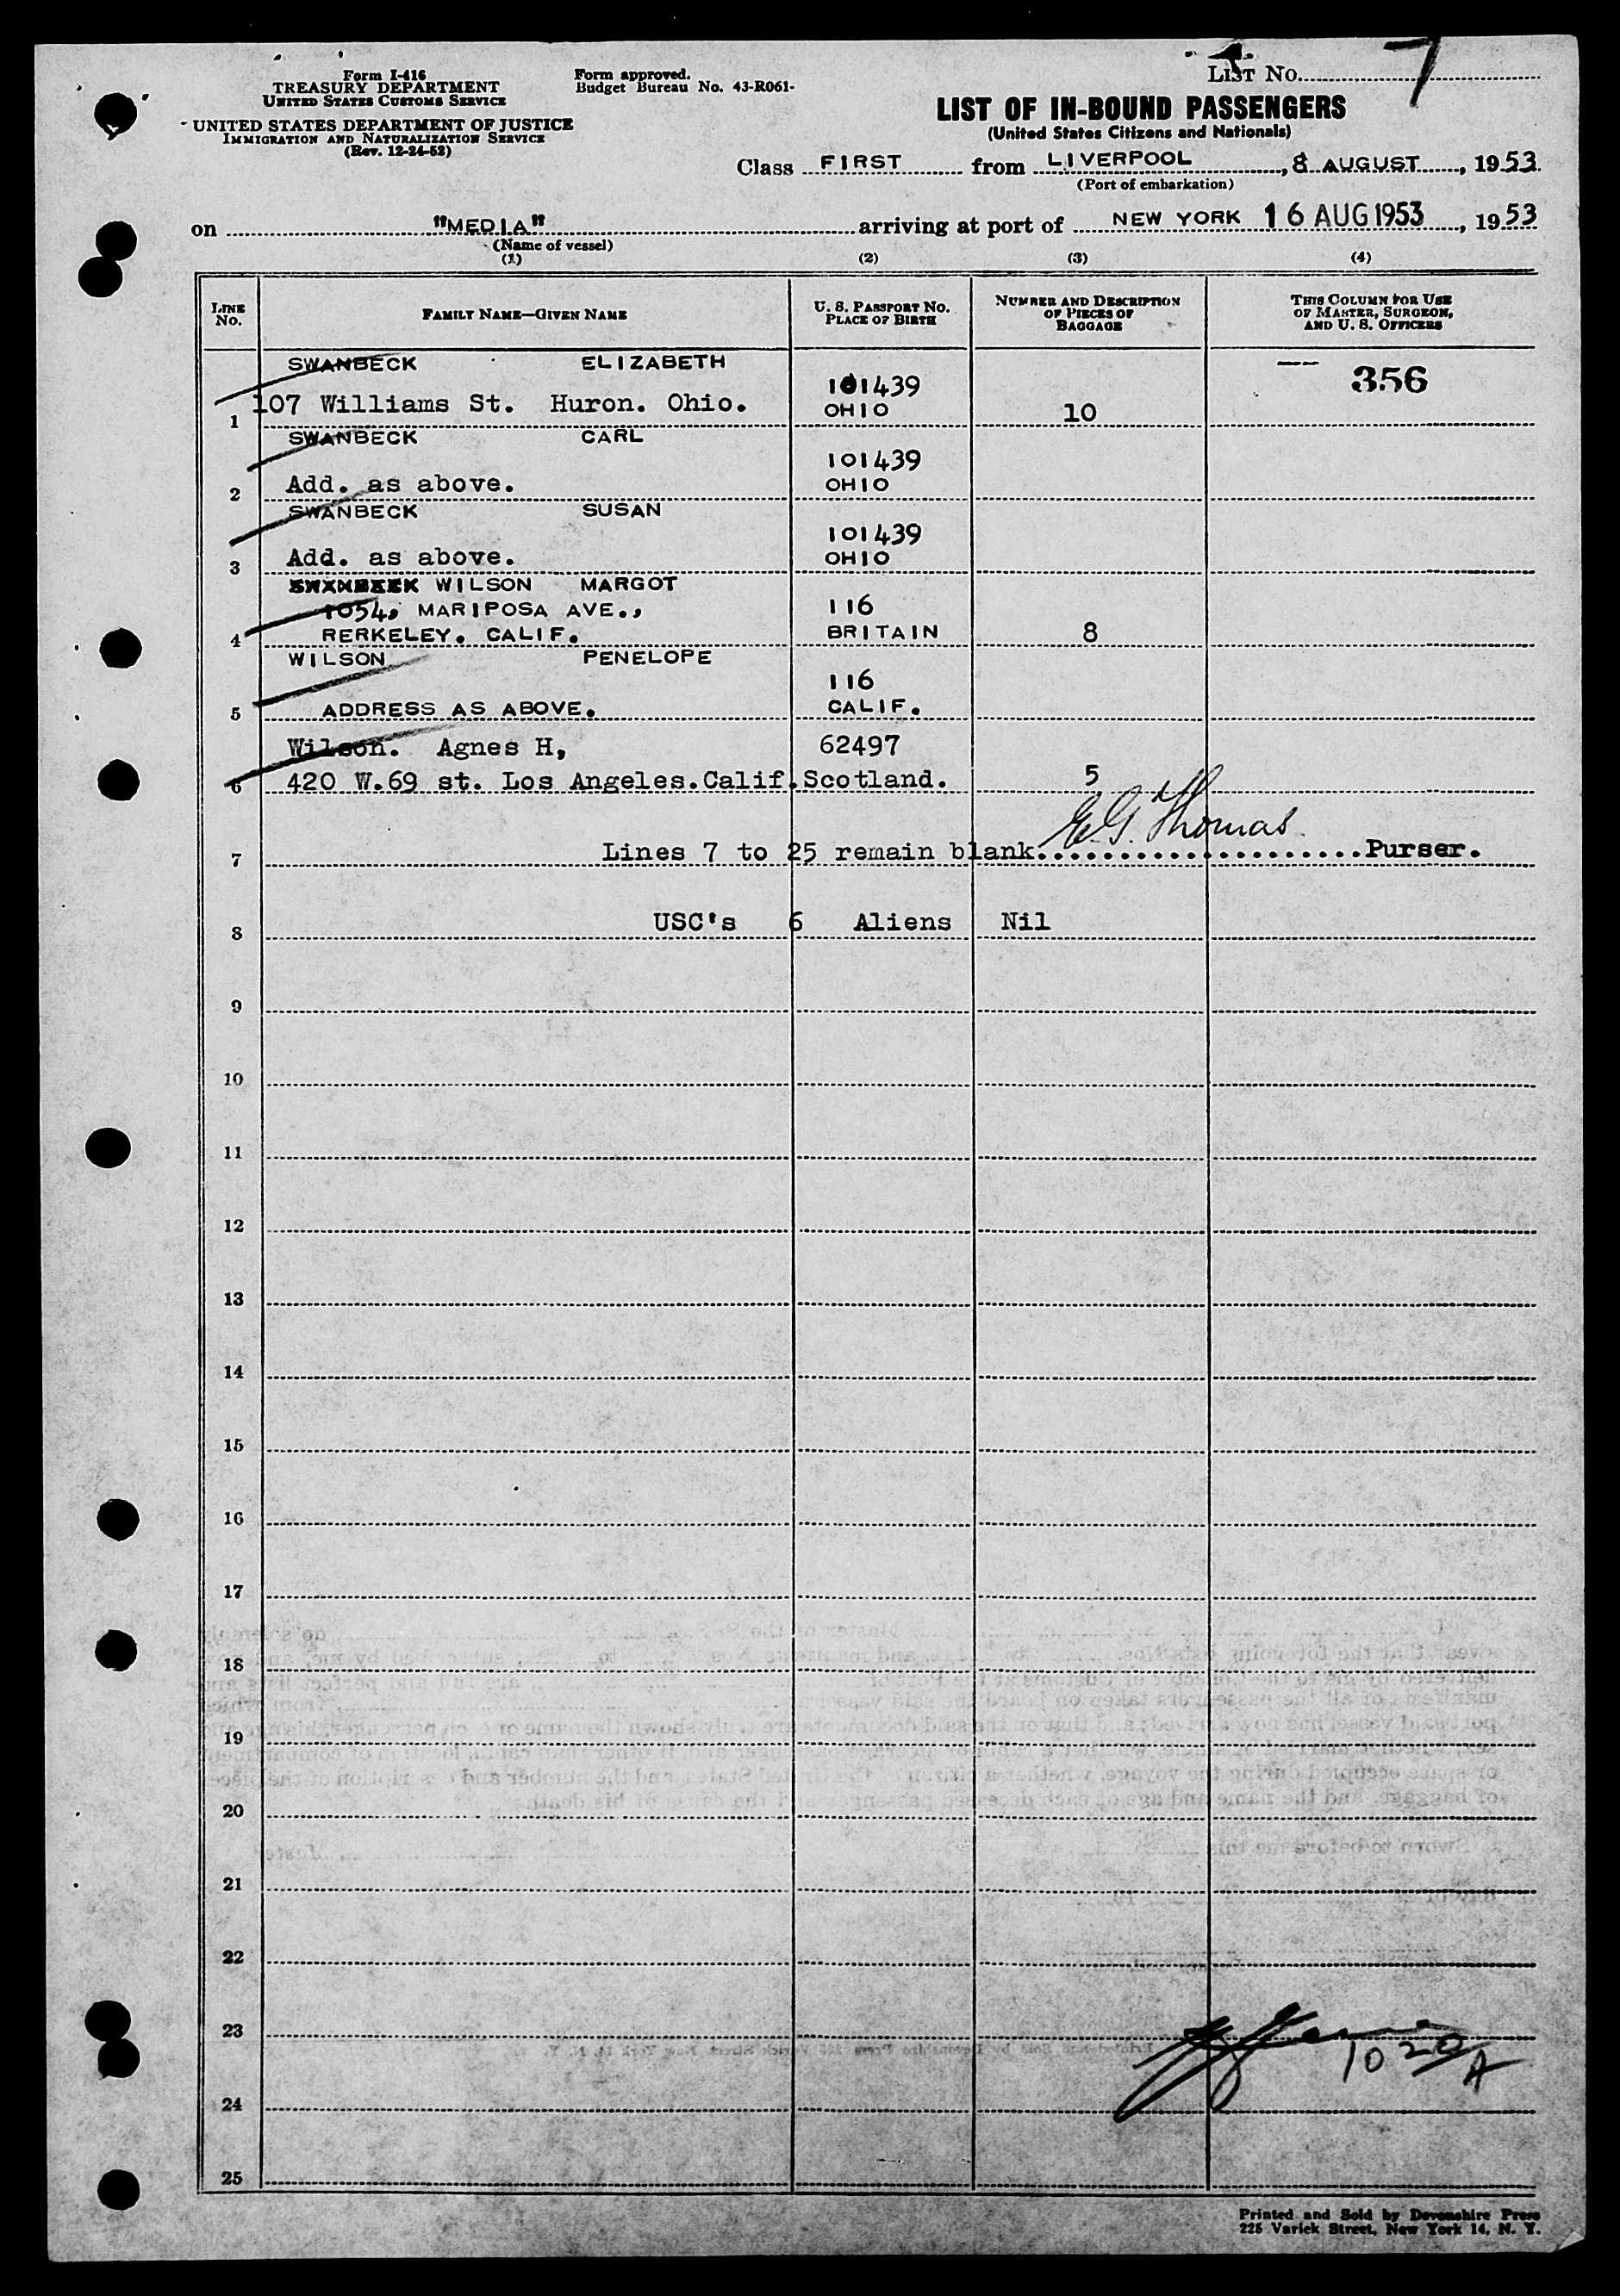 Form I-416
TREASURY DEPARTMENT
UNITED STATES CUSTOMS SERVICE
UNITED STATES DEPARTMENT OF JUSTICE
IMMIGRATION AND NATURALIZATION SERVICE
(Rev. 12-24-52)
Form approved.
Budget Bureau No. 43-R061-
LIST No. 7
LIST OF IN-BOUND PASSENGERS
(United States Citizens and Nationals)
Class FIRST from LIVERPOOL, 8 AUGUST, 1953
(Port of embarkation)
on "MEDIA" arriving at port of NEW YORK 16 AUG 1953, 1953
(Name of vessel)
(1) (2) (3) (4)
LINE No. FAMILY NAME—GIVEN NAME U. S. PASSPORT NO. PLACE OF BIRTH NUMBER AND DESCRIPTION OF PIECES OF BAGGAGE THIS COLUMN FOR USE OF MASTER, SURGEON, AND U. S. OFFICERS
SWANBECK ELIZABETH 356
101439
1 107 Williams St. Huron. Ohio. OHIO 10
SWANBECK CARL
101439
2 Add. as above. OHIO
SWANBECK SUSAN
101439
3 Add. as above. OHIO
SWANBECK WILSON MARGOT
1054, MARIPOSA AVE., 116
4 RERKELEY. CALIF. BRITAIN 8
WILSON PENELOPE
116
5 ADDRESS AS ABOVE. CALIF.
Wilson. Agnes H, 62497
6 420 W.69 st. Los Angeles.Calif.Scotland. 5
E.G. Thomas
7 Lines 7 to 25 remain blank.....................Purser.
8 USC's 6 Aliens Nil
9
10
11
12
13
14
15
16
17
18
19
20
21
22
23
10 20 A
24
25
Printed and Sold by Devonshire Press
225 Varick Street, New York 14, N. Y.